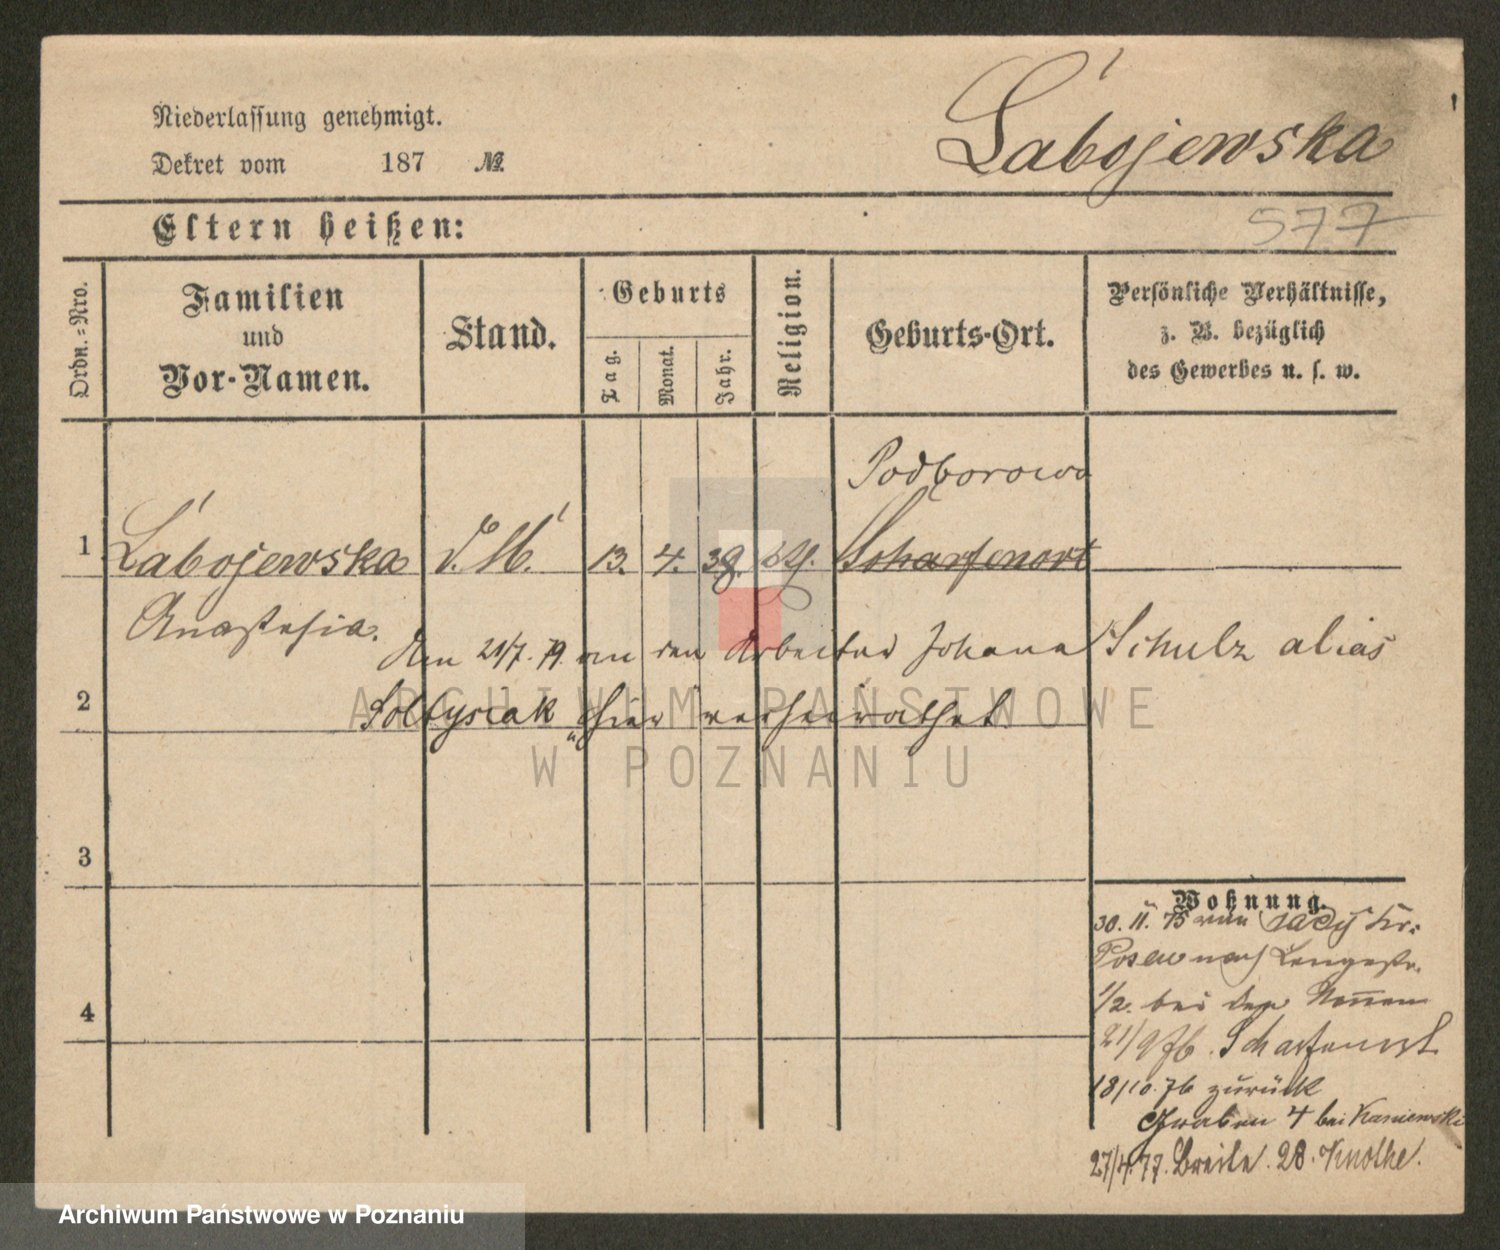 Niederlassung genehmigt.
Dekret vom 187 №
Łabojewska
577
Eltern heißen:
Ordn.-Nro.
Familien
und
Vor-Namen.
Stand.
Geburts
Tag.
Monat.
Jahr.
Religion.
Geburts-Ort.
Persönliche Verhältnisse,
z. B. bezüglich
des Gewerbes u. s. w.
Podborowo
1 Łabojewska D.M. 13. 4. Scharfenort
Anastasia.
Am 21/7. 79. an den Arbeiter Johann Schulz alias
2 Soltysiak hier verheirathet
3
4
Wohnung.
30. 11. 75 von Sady Kr.
Posen nach Langestr.
1/2. bei den Nonnen
21/9 76. Scharfenort
18/10. 76 zurück
Graben 4 bei Kaniewski
27/4. 77. Breite. 28. Knothe.
ARCHIWUM PAŃSTWOWE
W POZNANIU
Archiwum Państwowe w Poznaniu